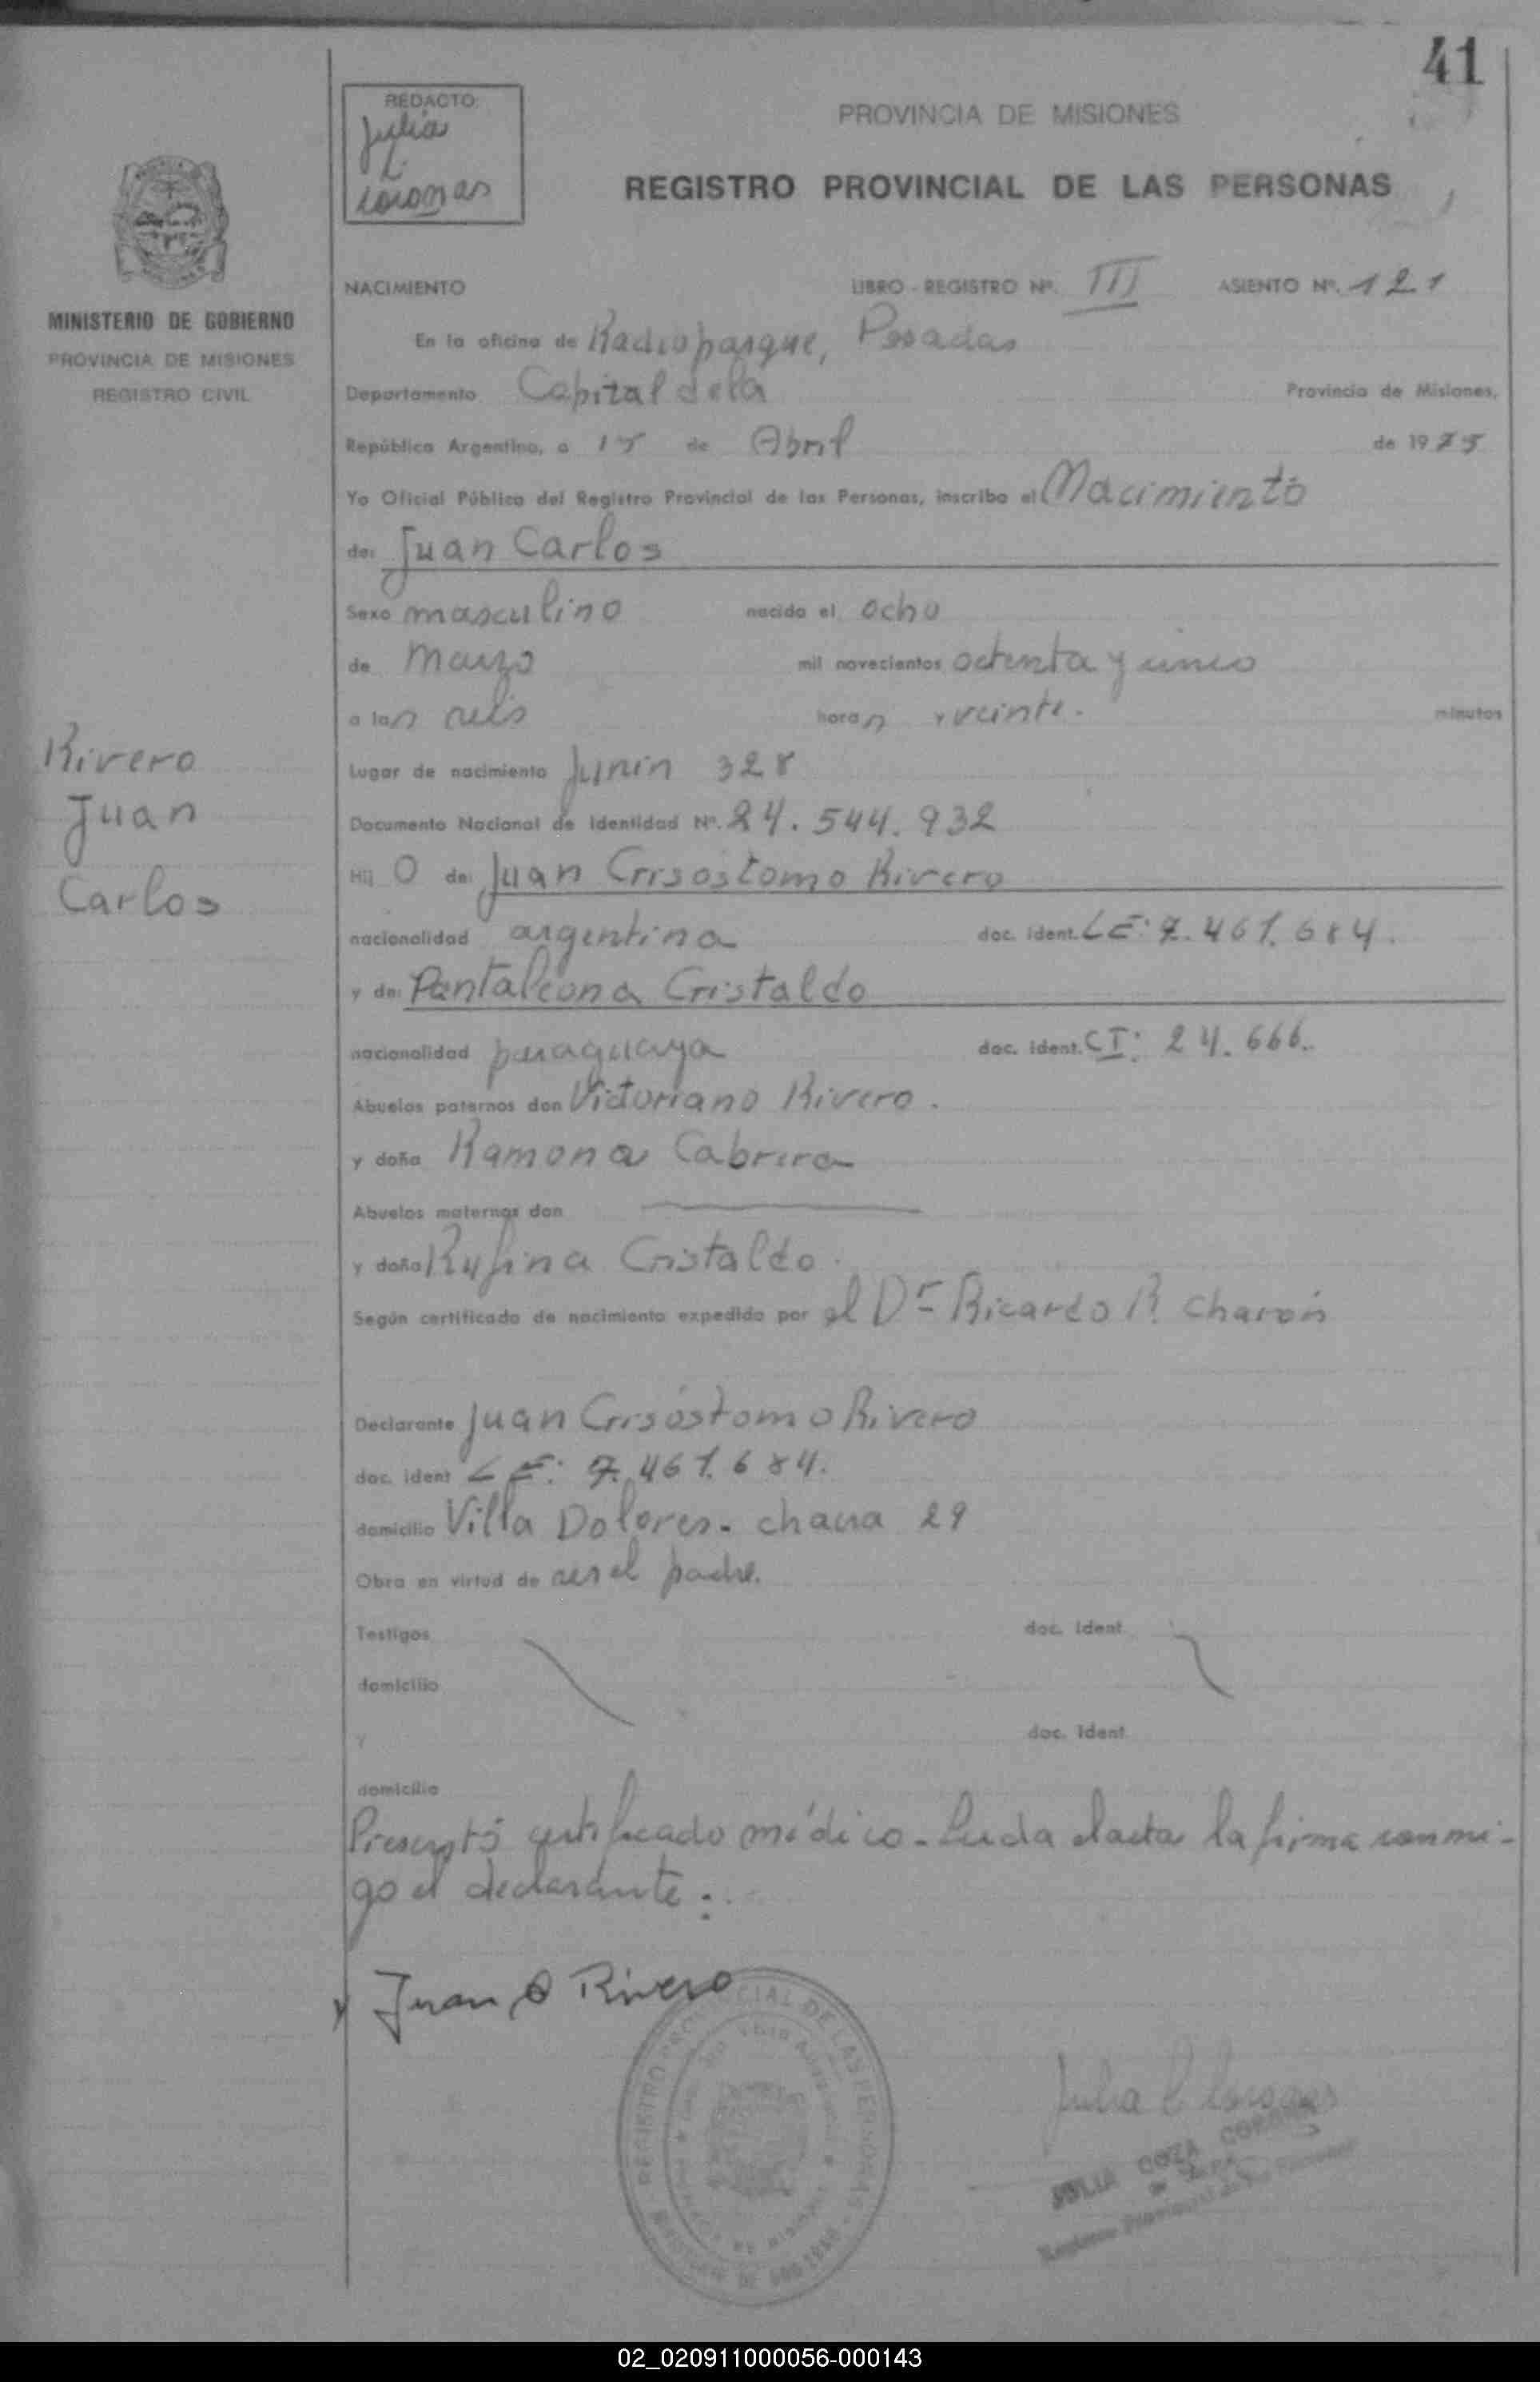 41
REDACTO:
Julia
C.
coronas
PROVINCIA DE MISIONES
REGISTRO PROVINCIAL DE LAS PERSONAS
MINISTERIO DE GOBIERNO
PROVINCIA DE MISIONES
REGISTRO CIVIL
NACIMIENTO LIBRO - REGISTRO Nº. III ASIENTO Nº. 121
En la oficina de Radioparque, Posadas
Departamento Capital dela Provincia de Misiones,
República Argentina, a 15 de Abril de 1975
Yo Oficial Público del Registro Provincial de las Personas, inscribo el Nacimiento
de: Juan Carlos
Sexo masculino nacido el ocho
de Marzo mil novecientos setenta y cinco
a las seis horas y veinte. minutos
Rivero
Juan
Carlos
Lugar de nacimiento Junín 328
Documento Nacional de Identidad Nº. 24.544.932
Hij o de: Juan Crisóstomo Rivero
nacionalidad argentina doc. ident. LE: 7.461.684.
y de: Pantaleona Cristaldo
nacionalidad paraguaya doc. ident. CI: 24.666.
Abuelos paternos don Victoriano Rivero.
y doña Ramona Cabrera
Abuelos maternos don
y doña Rufina Cristaldo.
Según certificado de nacimiento expedido por el Dr Ricardo R. Charón
Declarante Juan Crisóstomo Rivero
doc. ident LE: 7.461.684.
domicilio Villa Dolores - chacra 29
Obra en virtud de ser el padre.
Testigos doc. ident
domicilio
y doc. ident
domicilio
Presentó certificado médico - Leída el acta la firma conmi-
go el declarante:.
Juan C Rivero
REGISTRO PROVINCIAL DE LAS PERSONAS
Julia C Coronas
JULIA CORONAS
02_020911000056-000143